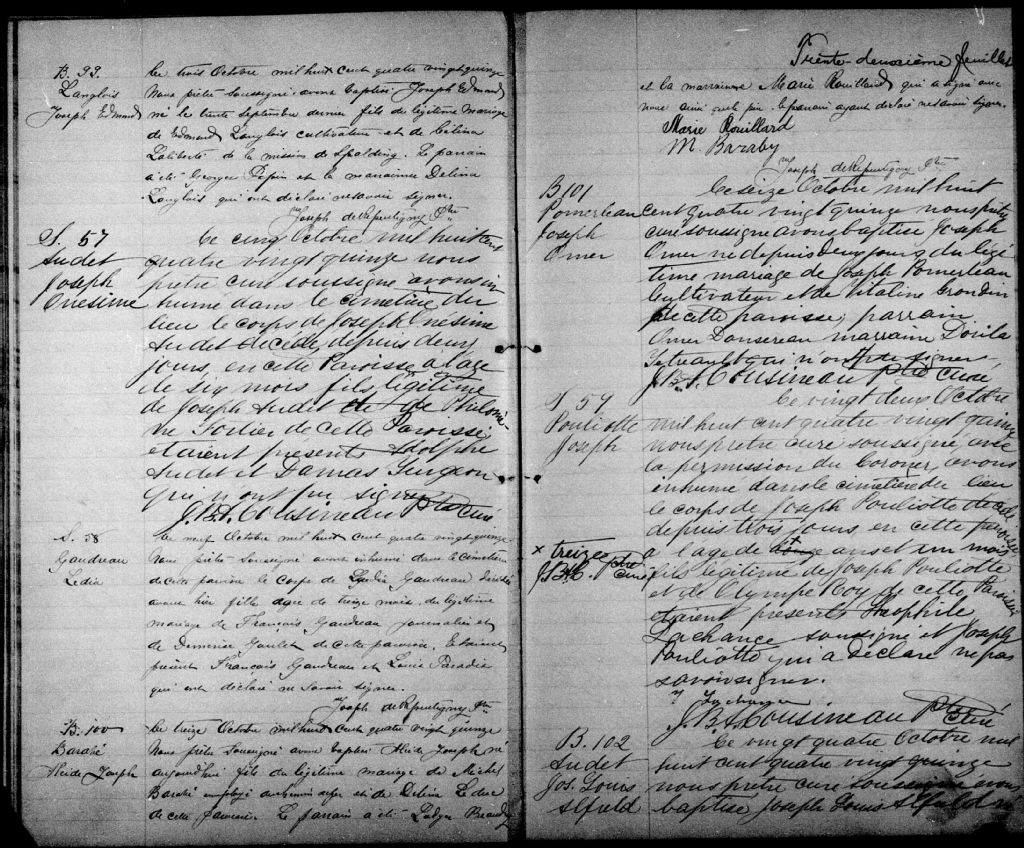 B. 99.
Langlois
Joseph Edmond
Le trois Octobre mil huit cent quatre vingt quinze
Nous prêtre soussigné avons baptisé Joseph Edmond
né le trente septembre dernier fils du légitime mariage
de Edmond Langlois cultivateur et de Célina
Laliberté de la mission de Spalding. Le parrain
a été Georges Pepin et la marraine Delina
Langlois qui ont déclaré ne savoir signer.
Joseph de Repentigny Ptre
S. 57
Audet
Joseph
Onesime
Ce cinq Octobre mil huit cent
quatre vingt quinze nous
prêtre curé soussigné avons in
humé dans le cimetière du
lieu le corps de Joseph Onésime
Audet décédé, depuis deux
jours, en cette Paroisse, a l'age
de six mois fils légitime
de Joseph Audet et de Philomè-
ne Fortier de cette Paroisse
étaient presents Adolphe
Audet et Damas Turgeon
qui n ont pu signer
J.B.A. Cousineau Ptre Curé
S. 58
Gaudreau
Ledia
Le neuf Octobre mil huit cent quatre vingt quinze
Nous prêtre soussigné avons inhumé dans le Cimetière
de cette paroisse le Corps de Ledia Gaudreau décédée
avant hier fille agée de treize mois du légitime
mariage de François Gaudreau journalier et
de Goulet de cette paroisse. Etaient
présent François Gaudreau et Louis Paradis
qui ont déclaré ne savoir signer.
Joseph de Repentigny Ptre
B. 100
Barabé
Joseph
Le treize Octobre mil huit cent quatre vingt quinze
Nous prêtre Soussigné avons baptisé Joseph né
aujourd'hui fils du légitime mariage de Michel
Barabé employé au chemin de fer et de Delina Leduc
de cette paroisse. Le parrain a été
Trente-deuxième feuillet
et la marraine Marie Rouillard qui a signé avec
nous ainsi que le père. Le parrain ayant déclaré ne savoir signer.
Marie Rouillard
M. Baraby
Joseph de Repentigny Ptre
B 101
Pomerleau
Joseph
Omer
Ce seize Octobre mil huit
cent quatre vingt quinze nous prêtre
curé soussigné avons baptisé Joseph
Omer né depuis deux jours du légi
time mariage de Joseph Pomerleau
Cultivateur et de Vitaline Grondin
de cette paroisse, parrain
Omer Dansereau marraine
qui n'ont pu signer
J.B.A. Cousineau Ptre curé
S 59
Pouliotte
Joseph
Ce vingt deux Octobre
mil huit cent quatre vingt quinze
nous prêtre curé soussigné avec
la permission du Coroner, avons
inhumé dans le cimetière du lieu
le corps de Joseph Pouliotte décédé
depuis trois jours, en cette paroisse
a l'age de ans et un mois
x treize
J.B.A.C. Ptre curé
fils légitime de Joseph Pouliotte
et de Olympe Roy de cette Paroisse
etaient presents Theophile
Lachance soussigné et Joseph
Pouliotte qui a déclaré ne pas
savoir signer.
J.B.A Cousineau Ptre Curé
B. 102
Audet
Jos. Louis
Alfred
Ce vingt quatre Octobre mil
huit cent quatre vingt quinze
nous prêtre curé soussigné avons
baptisé Joseph Louis Alfred né